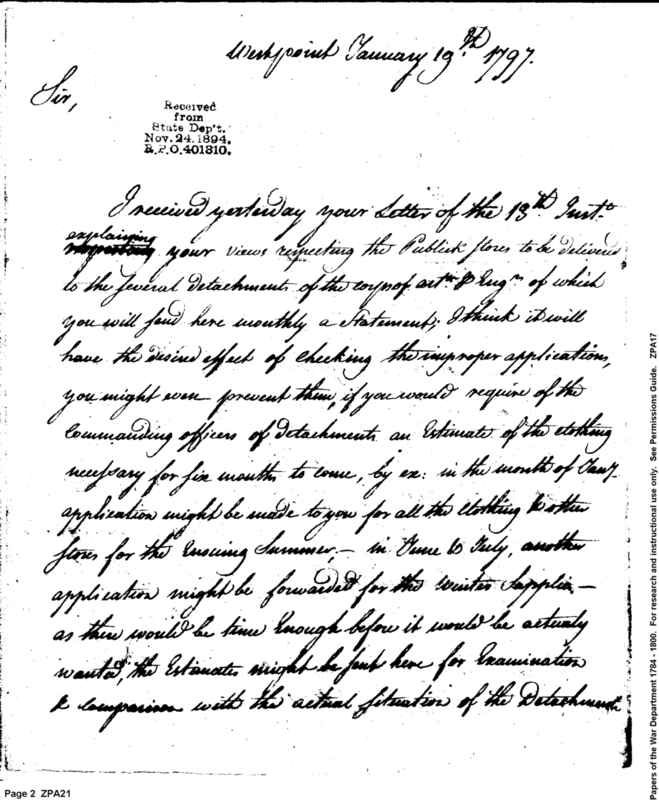 Westpoint January 19th 1797.
Sir,
Received
from
State Dep't.
Nov. 24. 1894.
R.P.O. 401310.
I received yesterday your Letter of the 13th Instt
explaining
your views respecting the Publick stores to be delivered
to the several detachments of the corps of artts & Engrs of which
you will send here monthly a Statement; I think it will
have the desired effect of checking the improper applications,
you might even prevent them, if you would require of the
Commanding officers of detachments an Estimate of the clothing
necessary for six months to come, by ex: in the month of Jany
application might be made to you for all the clothing & other
stores for the Ensuing Summer,— in June & July, another
application might be forwarded for the Winter Supplies—
as there would be time Enough before it would be actualy
wanted, the Estimates might be sent here for Examination
& comparison with the actual situation of the Detachments
Page 2 ZPA21
Papers of the War Department 1784 - 1800. For research and instructional use only. See Permissions Guide. ZPA17